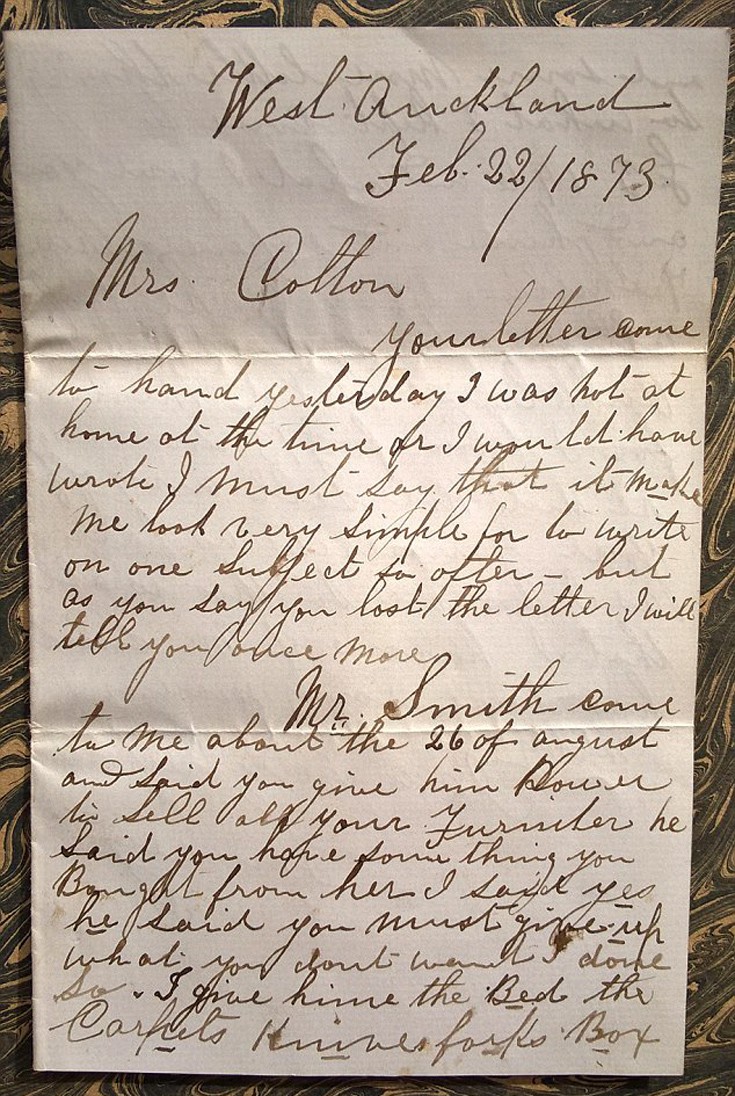 West Auckland
Feb. 22/1873
Mrs Cotton
your letter come
to hand yesterday I was not at
home at the time or I would have
wrote I must say that it make
me look very simple for to write
on one subject so often - but
as you say you lost the letter I will
tell you once more
Mr. Smith come
to me about the 26 of august
and said you give him Power
to sell all your Furniter he
said you have some thing you
Bought from her I said yes
he said you must give up
what you dont want I done
so. I give hime the Bed the
Carpets Knives forks Box